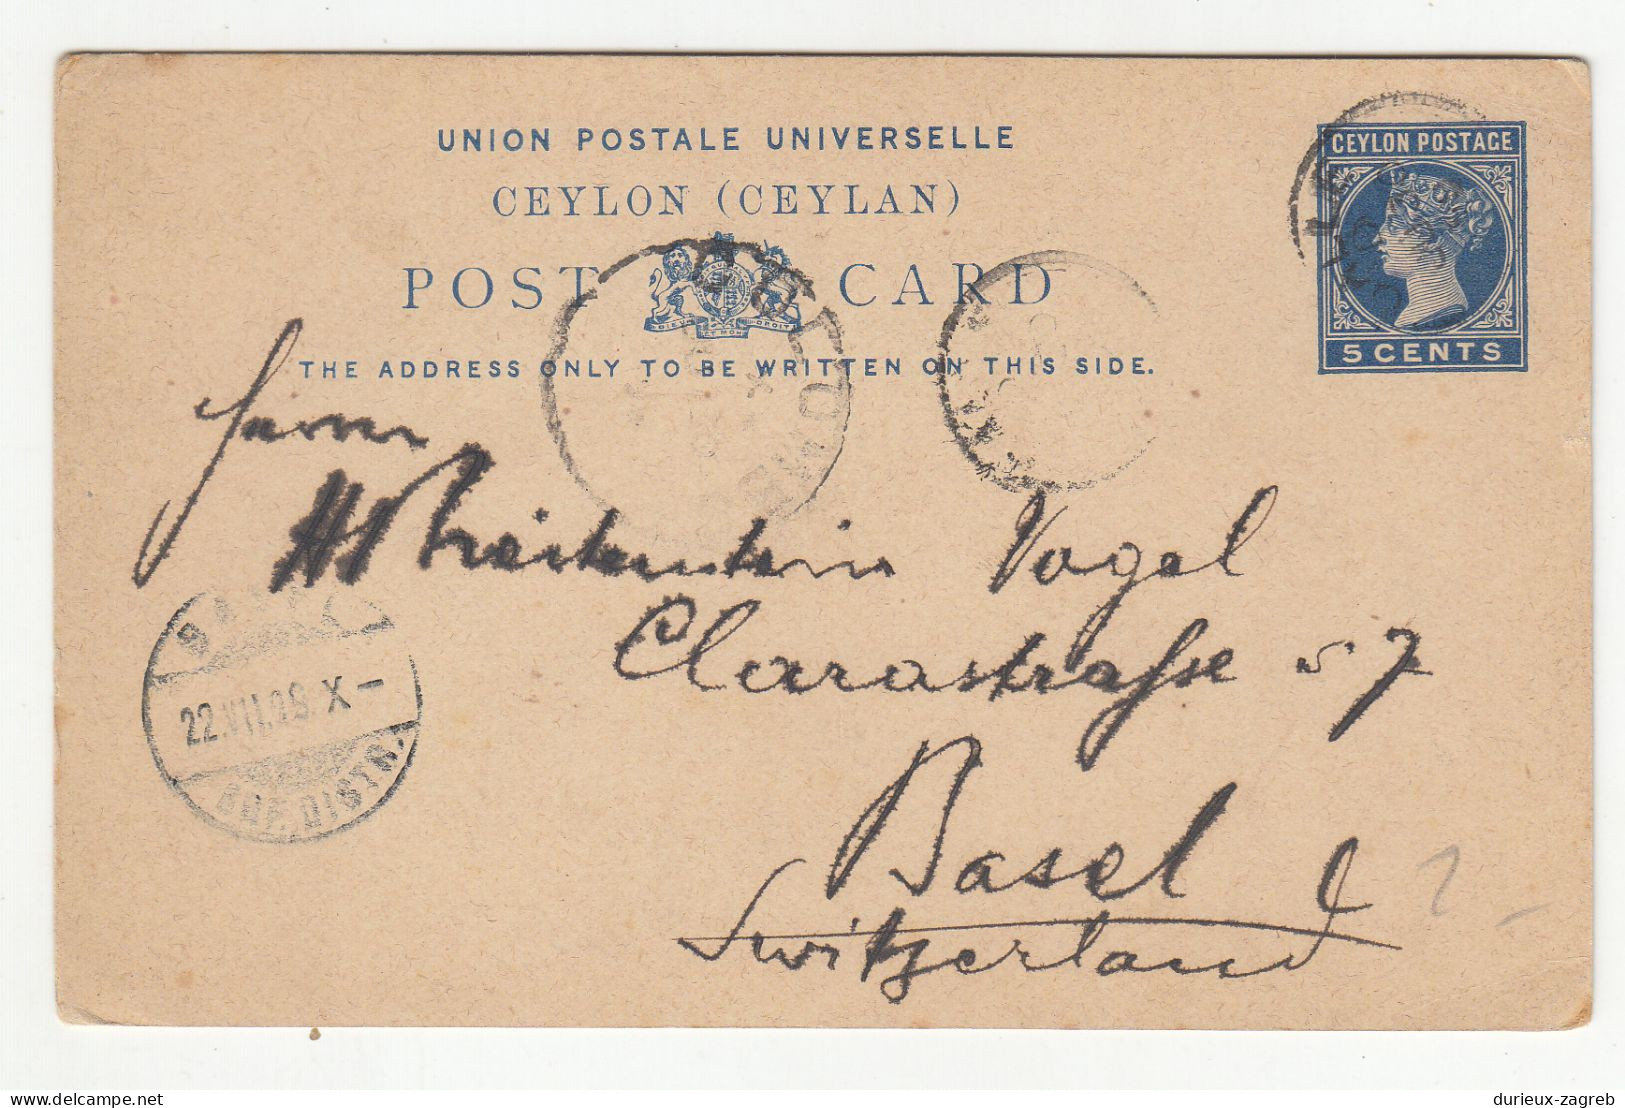 UNION POSTALE UNIVERSELLE
CEYLON (CEYLAN)
POST CARD
THE ADDRESS ONLY TO BE WRITTEN ON THIS SIDE.
CEYLON POSTAGE
5 CENTS
DIEU ET MON DROIT
COLOMBO
Herrn
Vogel
Clarastrasse 57
Basel
Switzerland
BASEL
22.VII. X–
BRF.DISTR.
delcampe.net
durieux-zagreb